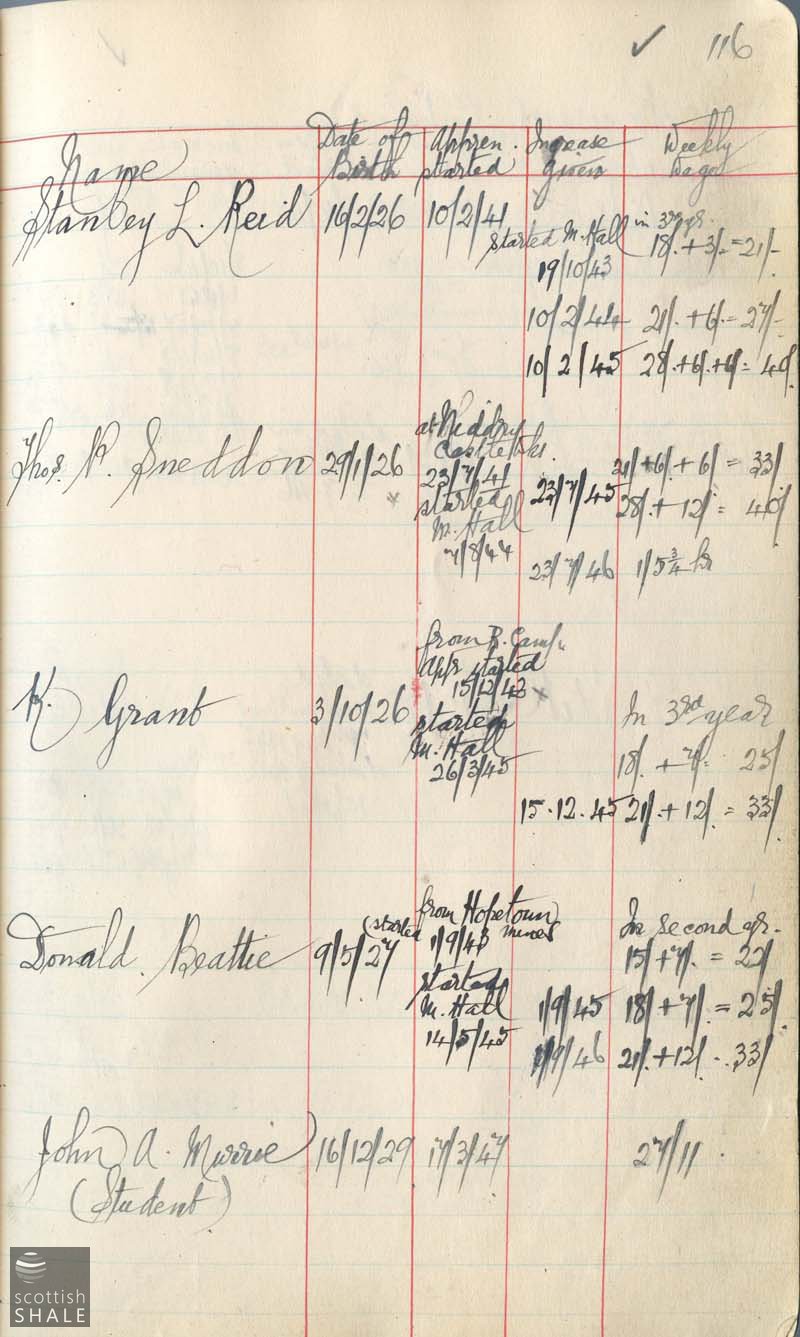 116
Name Date of Birth Appren. started Increase given Weekly Wage
Stanley L. Reid 16/2/26 10/2/41 started M. Hall in 3rd yr.
19/10/43 18/. + 3/. = 21/-
10/2/44 21/. + 6/. = 27/-
10/2/45 28/. + 6/. + 6/. = 40/.
Thos. N. Sneddon 29/1/26 at Niddry Castle Wks.
23/7/41 21/ + 6/. + 6/. = 33/
started M. Hall 23/7/45 28/. + 12/. = 40/
7/8/44 23/7/46 1/5 3/4 hr
K. Grant 3/10/26 from R. Camp
Appr started
15/12/43
started In 3rd year
M. Hall 18/. + 7/. = 25/
26/3/45
15.12.45 21/. + 12/. = 33/
Donald Beattie 9/5/27 (started from Hopetoun mines In second yr.
1/9/43 15/ + 7/. = 22/
started
M. Hall 1/9/45 18/ + 7/. = 25/
14/5/45 1/9/46 21/. + 12/. 33/
John A. Murrie 16/12/29 17/3/47 27/11
(Student)
scottish
SHALE